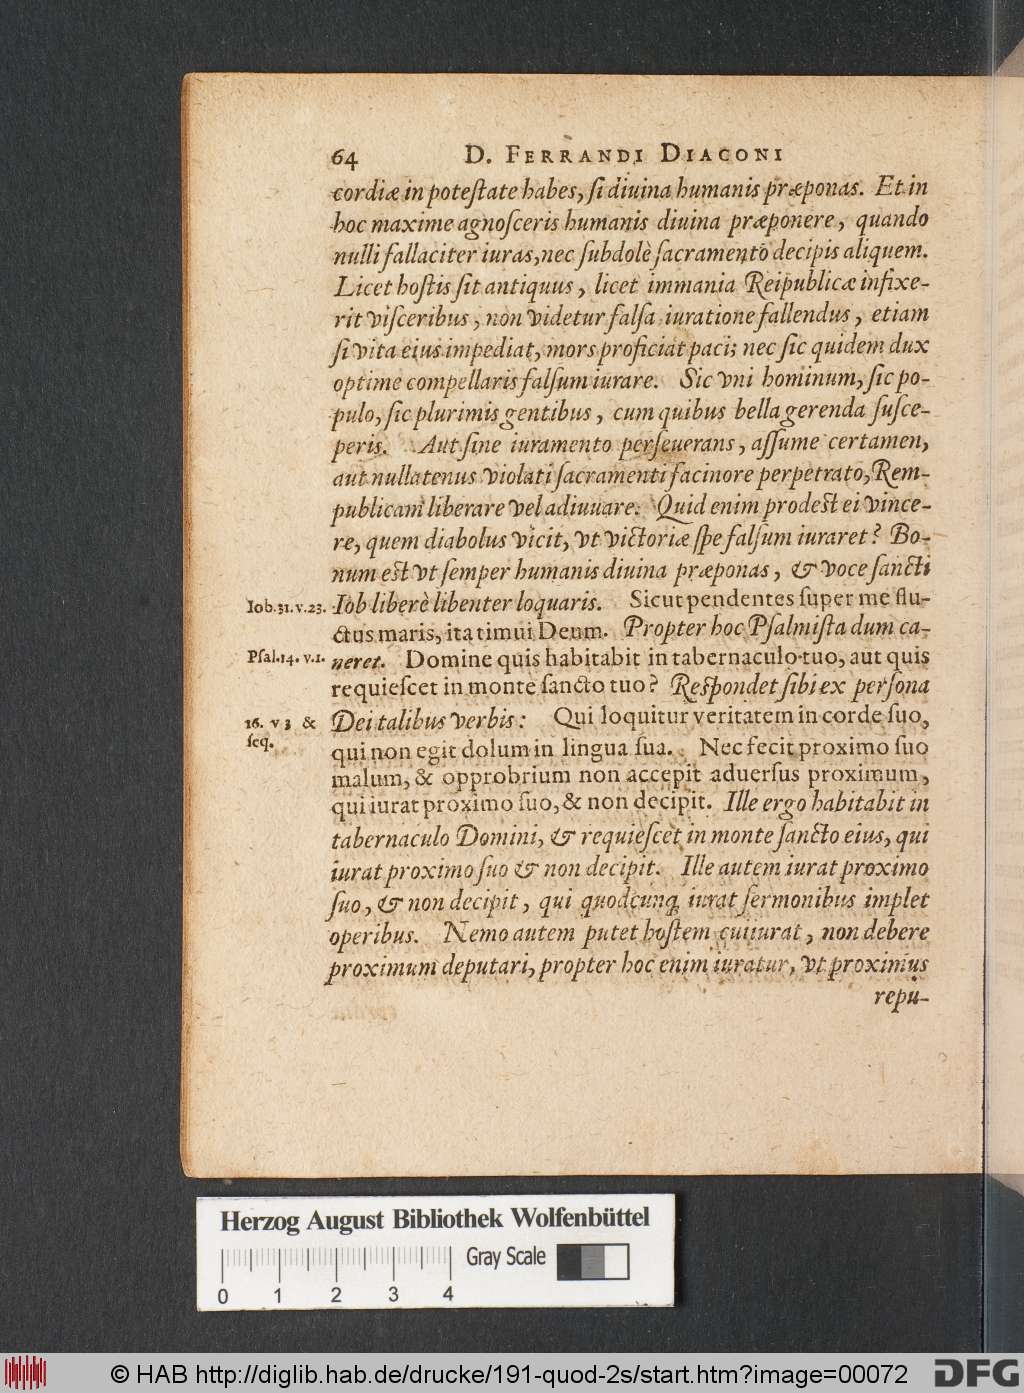 64 D. FERRANDI DIACONI
cordiæ in poteſtate habes, ſi diuina humanis præponas. Et in
hoc maxime agnoſceris humanis diuina præponere, quando
nulli fallaciter iuras, nec ſubdolè ſacramento decipis aliquem.
Licet hoſtis ſit antiquus, licet immania Reipublicæ infixe-
rit viſceribus, non videtur falſa iuratione fallendus, etiam
ſi vita eius impediat, mors proficiat paci; nec ſic quidem dux
optime compellaris falſum iurare. Sic vni hominum, ſic po-
pulo, ſic plurimis gentibus, cum quibus bella gerenda ſuſce-
peris. Aut ſine iuramento perſeuerans, aſſume certamen,
aut nullatenus violati ſacramenti facinore perpetrato, Rem-
publicam liberare vel adiuuare. Quid enim prodest ei vince-
re, quem diabolus vicit, vt victoriæ ſpe falſum iuraret? Bo-
num est vt ſemper humanis diuina præponas, & voce ſancti
Iob.31.v.23. Iob liberè libenter loquaris. Sicut pendentes ſuper me flu-
ctus maris, ita timui Deum. Propter hoc Pſalmiſta dum ca-
Pſal.14. v.1. neret. Domine quis habitabit in tabernaculo tuo, aut quis
requieſcet in monte ſancto tuo? Reſpondet ſibi ex perſona
16. v 3 & Dei talibus verbis: Qui loquitur veritatem in corde ſuo,
ſeq.
qui non egit dolum in lingua ſua. Nec fecit proximo ſuo
malum, & opprobrium non accepit aduerſus proximum,
qui iurat proximo ſuo, & non decipit. Ille ergo habitabit in
tabernaculo Domini, & requieſcet in monte ſancto eius, qui
iurat proximo ſuo & non decipit. Ille autem iurat proximo
ſuo, & non decipit, qui quodcunq; iurat ſermonibus implet
operibus. Nemo autem putet hoſtem cui iurat, non debere
proximum deputari, propter hoc enim iuratur, vt proximus
repu-
Herzog August Bibliothek Wolfenbüttel
Gray Scale
0 1 2 3 4
© HAB http://diglib.hab.de/drucke/191-quod-2s/start.htm?image=00072
DFG